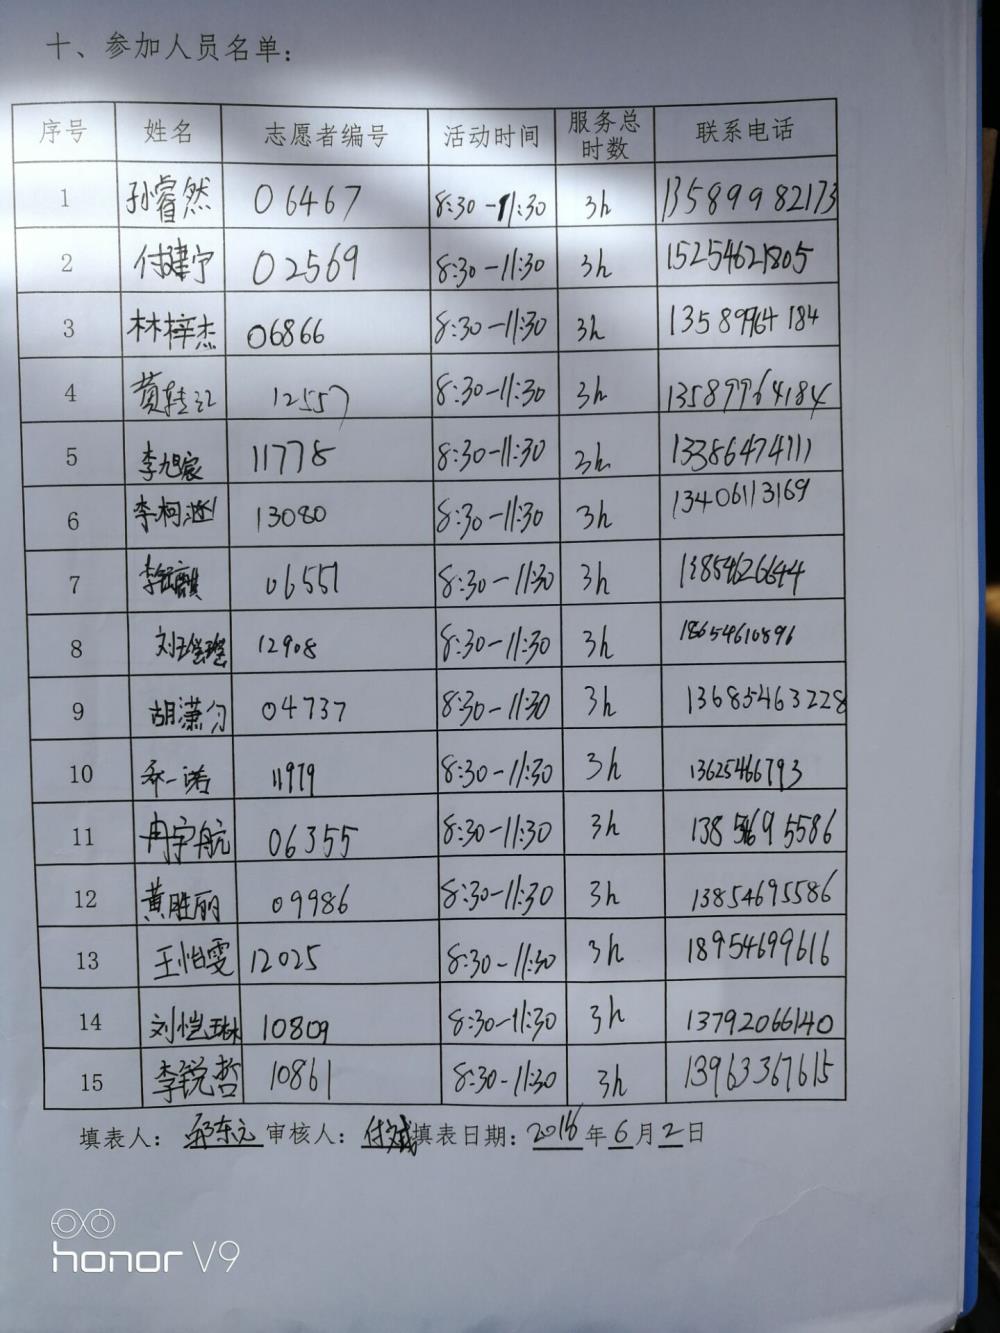 十、参加人员名单：
序号 姓名 志愿者编号 活动时间 服务总时数 联系电话
1 孙睿然 06467 8:30-11:30 3h 13589982173
2 付建宁 02569 8:30-11:30 3h 15254621805
3 林梓杰 06866 8:30-11:30 3h 13589964184
4 12557 8:30-11:30 3h 13589964184
5 李旭宸 11778 8:30-11:30 3h 13386474111
6 李柯涵 13080 8:30-11:30 3h 13406113169
7 06551 8:30-11:30 3h 13854626644
8 12908 8:30-11:30 3h 18654610896
9 胡潇匀 04737 8:30-11:30 3h 13685463228
10 乔一诺 11979 8:30-11:30 3h 13625466793
11 冉宇航 06355 8:30-11:30 3h 13854695586
12 黄胜丽 09986 8:30-11:30 3h 13854695586
13 王怡雯 12025 8:30-11:30 3h 18954699616
14 刘恺琳 10809 8:30-11:30 3h 13792066140
15 李锐哲 10861 8:30-11:30 3h 13963367615
填表人： 审核人： 填表日期：2018年6月2日
honor V9